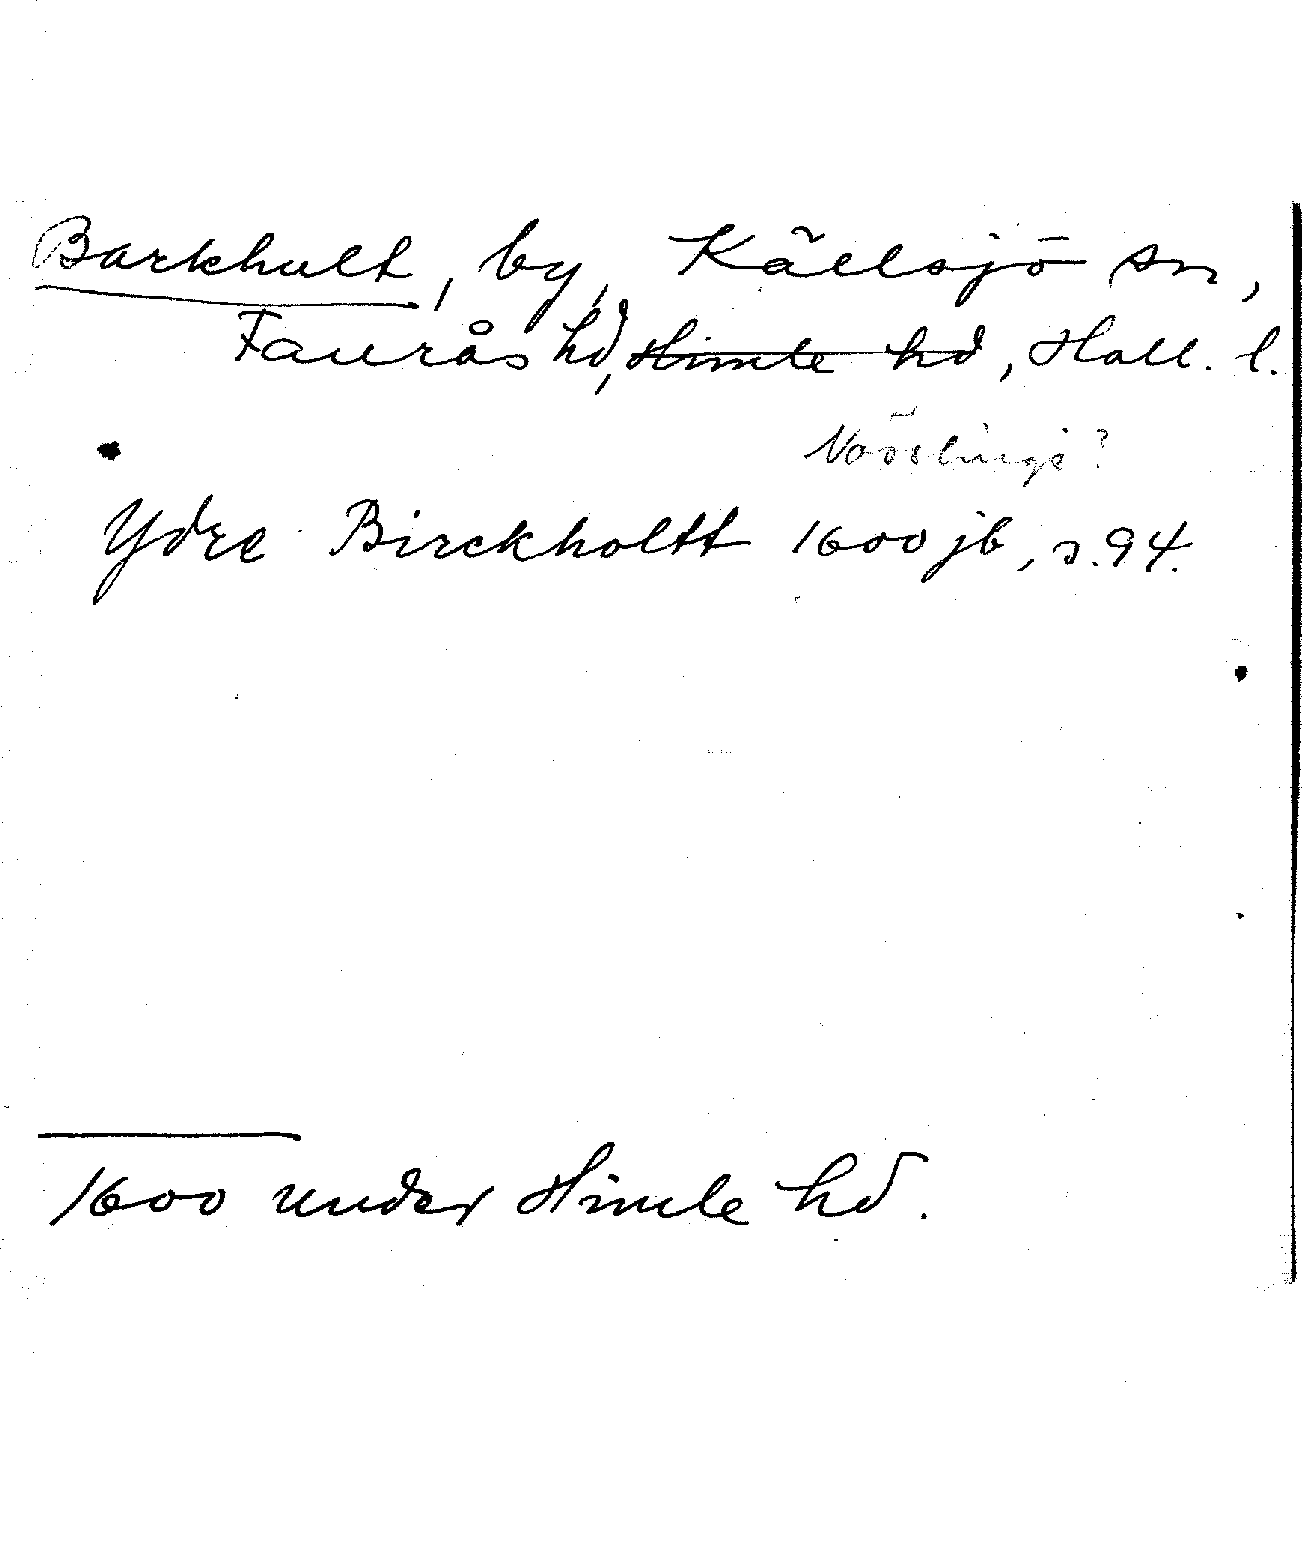 Barkhult, by, Källsjö sn,
Faurås hd, Himle hd, Hall. l.
Ydre Birckholtt 1600 jb, s. 94.
1600 under Himle hd.